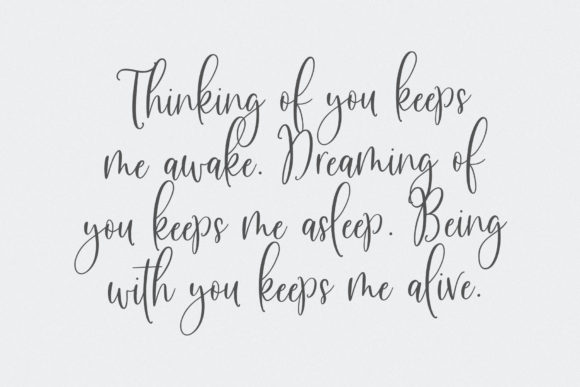 Thinking of you keeps
me awake. Dreaming of
you keeps me asleep. Being
with you keeps me alive.